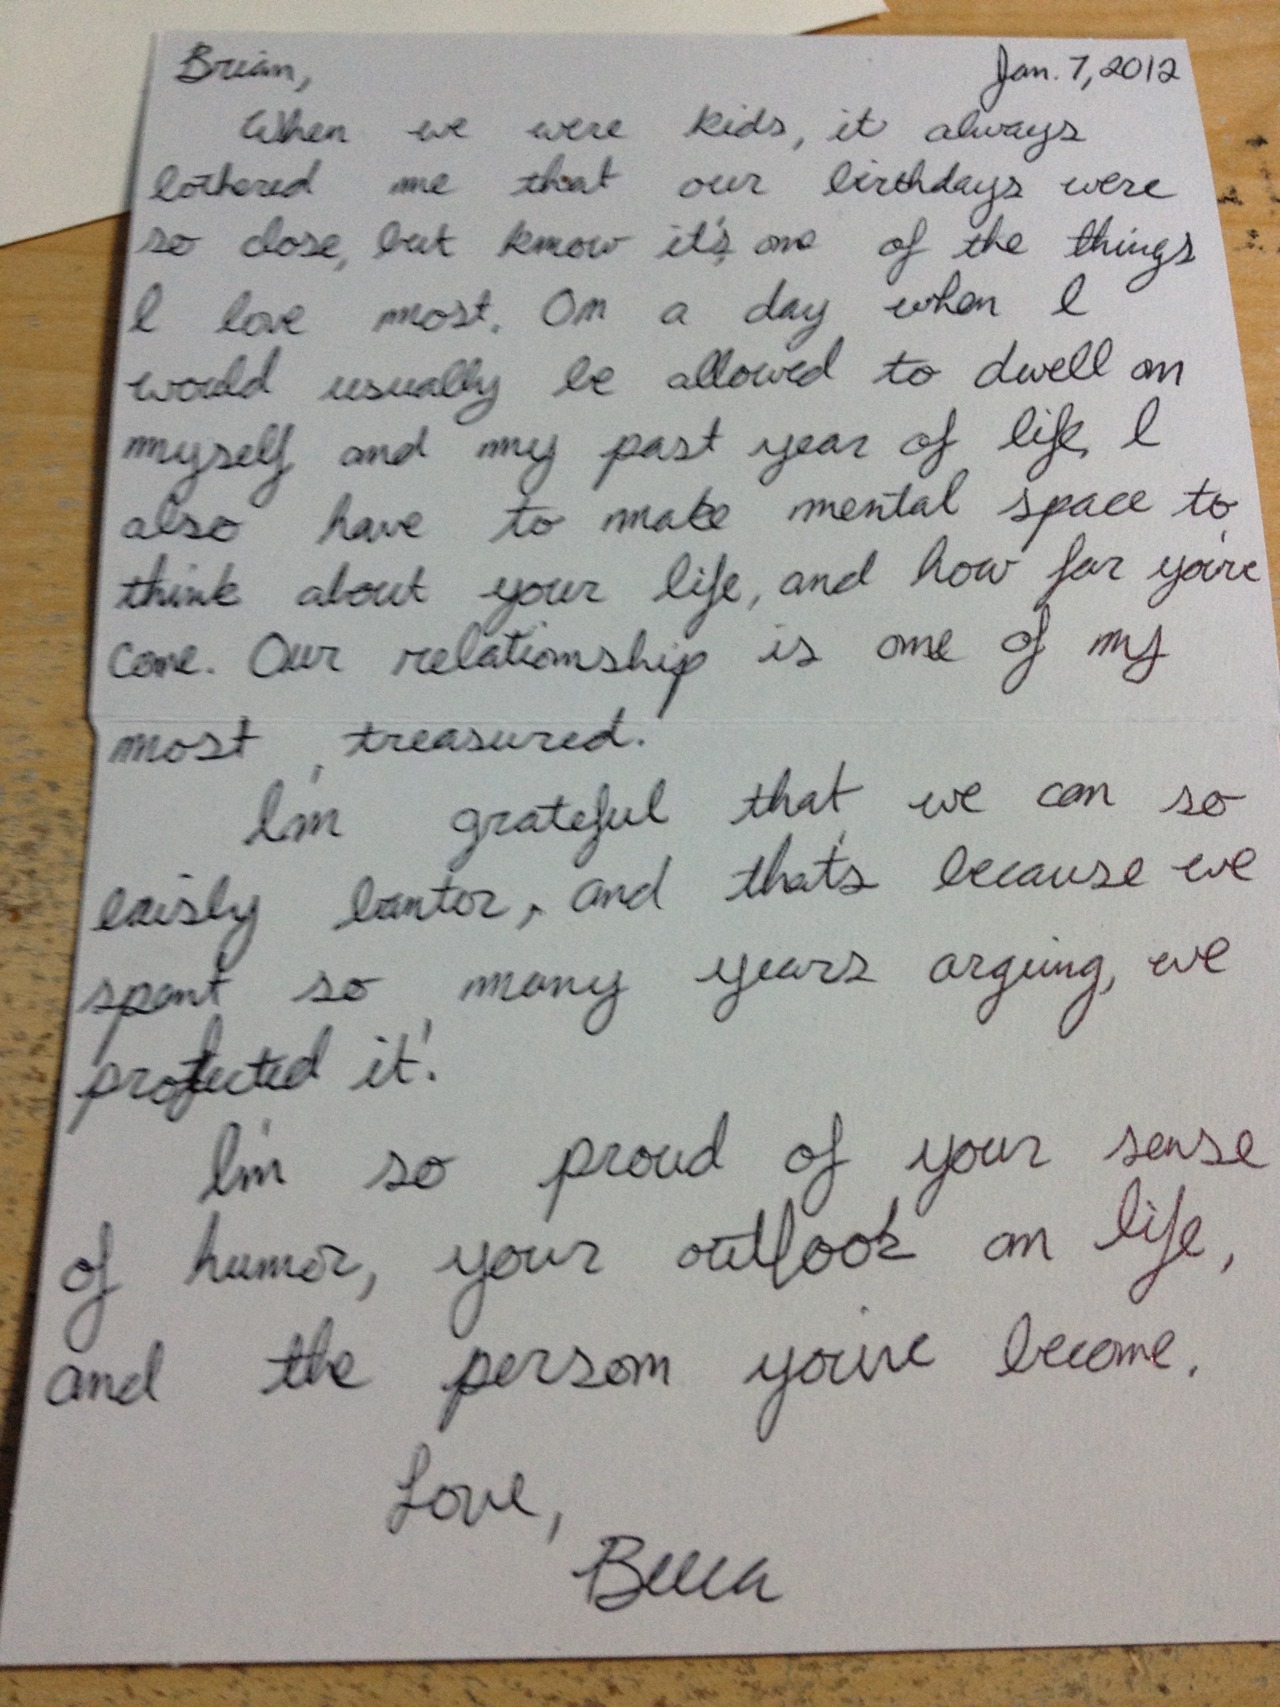 Brian, Jan. 7, 2012
When we were kids, it always
bothered me that our birthdays were
so close, but know it's one of the things
I love most. On a day when I
would usually be allowed to dwell on
myself and my past year of life, I
also have to make mental space to
think about your life, and how far you're
come. Our relationship is one of my
most treasured.
I'm grateful that we can so
eaisly banter, and that's because we
spent so many years arguing, we
protected it!
I'm so proud of your sense
of humor, your outlook on life,
and the person you've become.
Love,
Becca